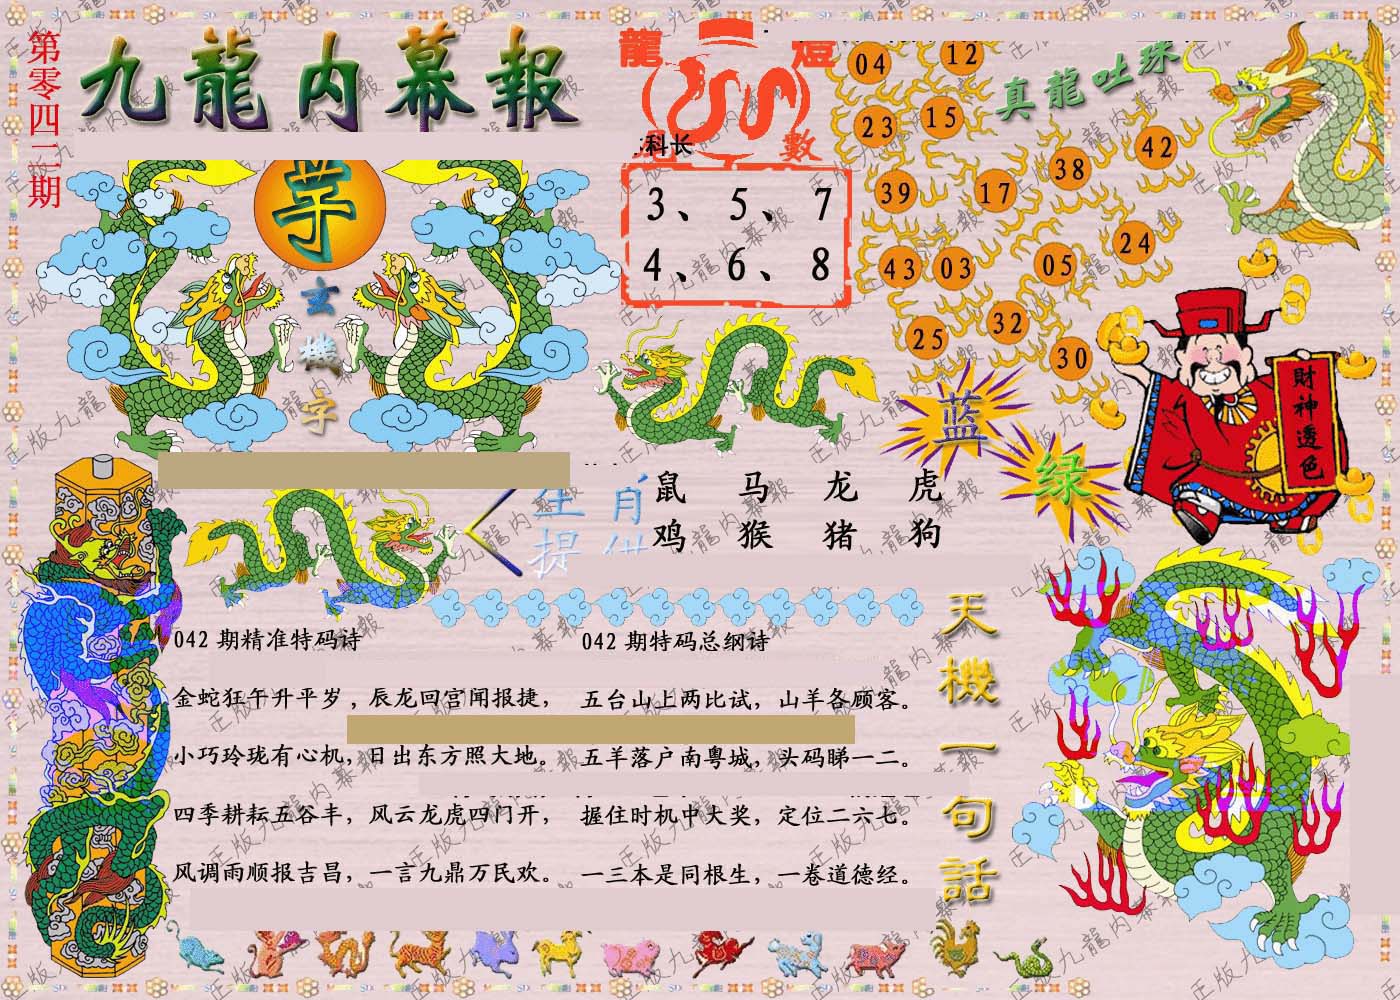 第零四二期
九龍内幕報
龍 燈
數
科长
3、5、7
4、6、8
真龍吐珠
04
12
23
15
42
38
39
17
24
43
03
05
32
25
30
玄機字
蓝
绿
財神透色
生肖
提供
鼠 马 龙 虎
鸡 猴 猪 狗
042 期精准特码诗
金蛇狂午升平岁，辰龙回宫闻报捷，
小巧玲珑有心机，日出东方照大地。
四季耕耘五谷丰，风云龙虎四门开，
风调雨顺报吉昌，一言九鼎万民欢。
042 期特码总纲诗
五台山上两比试，山羊各顾客。
五羊落户南粤城，头码睇一二。
握住时机中大奖，定位二六七。
一三本是同根生，一卷道德经。
天機一句話
正版九龍内幕報